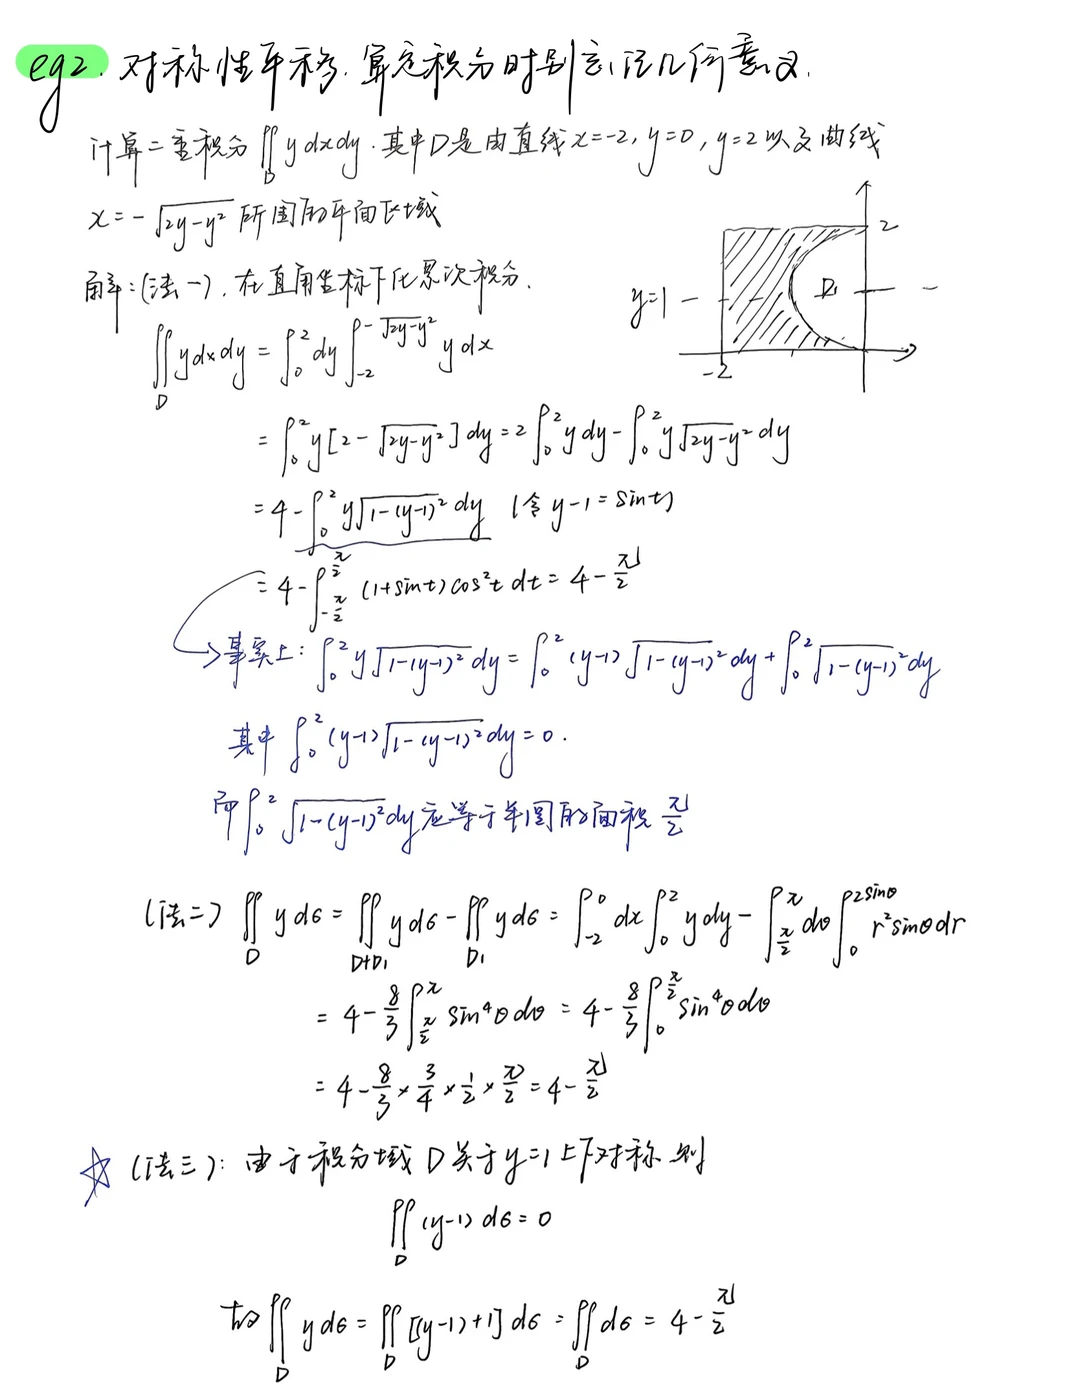 eg2. 对称性平移. 算定积分时别忘记几何意义.
计算二重积分 ∬_D y dxdy. 其中D是由直线 x=-2, y=0, y=2 以及曲线
x = -√(2y-y²) 所围的平面区域
2
y=1
D₁
-2
解: (法一). 在直角坐标下化累次积分.
∬_D y dxdy = ∫_0^2 dy ∫_{-2}^{-√(2y-y²)} y dx
= ∫_0^2 y[2-√(2y-y²)] dy = 2∫_0^2 y dy - ∫_0^2 y√(2y-y²) dy
= 4 - ∫_0^2 y√(1-(y-1)²) dy (令 y-1 = sint)
= 4 - ∫_{-π/2}^{π/2} (1+sint) cos²t dt = 4 - π/2
事实上: ∫_0^2 y√(1-(y-1)²) dy = ∫_0^2 (y-1)√(1-(y-1)²) dy + ∫_0^2 √(1-(y-1)²) dy
其中 ∫_0^2 (y-1)√(1-(y-1)²) dy = 0.
而 ∫_0^2 √(1-(y-1)²) dy 应等于半圆的面积 π/2
(法二) ∬_D y dσ = ∬_{D+D₁} y dσ - ∬_{D₁} y dσ = ∫_{-2}^0 dx ∫_0^2 y dy - ∫_{π/2}^π dθ ∫_0^{2sinθ} r² sinθ dr
= 4 - 8/3 ∫_{π/2}^π sin⁴θ dθ = 4 - 8/3 ∫_0^{π/2} sin⁴θ dθ
= 4 - 8/3 × 3/4 × 1/2 × π/2 = 4 - π/2
☆ (法三): 由于积分域 D 关于 y=1 上下对称 则
∬_D (y-1) dσ = 0
故 ∬_D y dσ = ∬_D [(y-1)+1] dσ = ∬_D dσ = 4 - π/2